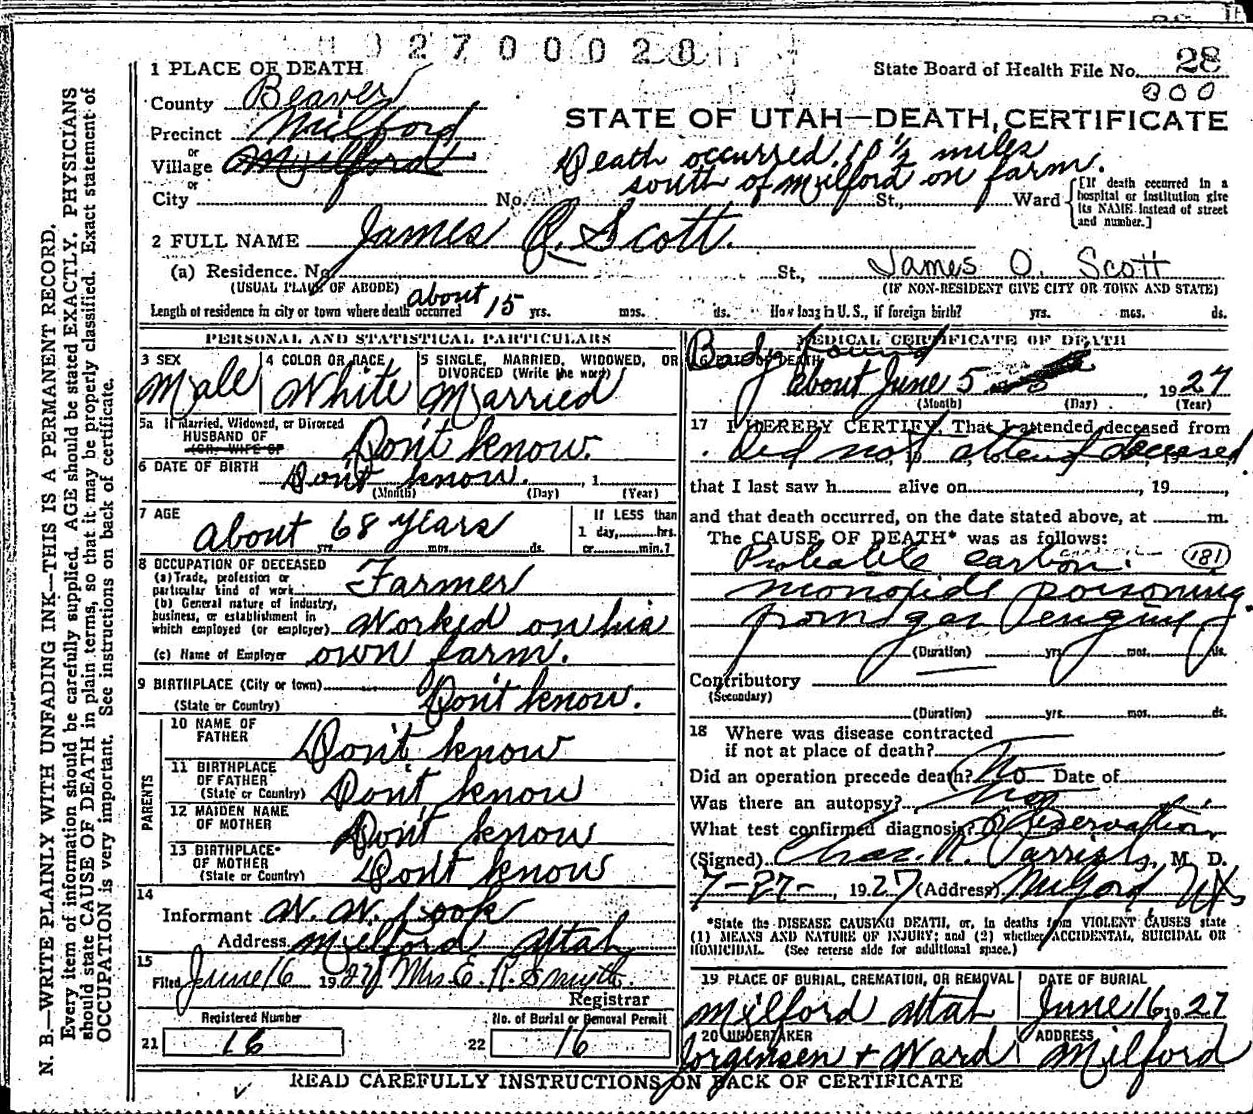 02700028
State Board of Health File No. 28
000
1 PLACE OF DEATH
County Beaver
STATE OF UTAH—DEATH CERTIFICATE
Precinct Milford
or
Village Milford
Death occurred 10 1/2 miles
south of Milford on farm.
or
City No. St., Ward
[If death occurred in a
hospital or institution give
its NAME instead of street
and number.]
2 FULL NAME James R. Scott.
(a) Residence. No. St., James O. Scott
(USUAL PLACE OF ABODE) (IF NON-RESIDENT GIVE CITY OR TOWN AND STATE)
Length of residence in city or town where death occurred about 15 yrs. mos. ds. How long in U.S., if foreign birth? yrs. mos. ds.
PERSONAL AND STATISTICAL PARTICULARS
3 SEX Male
4 COLOR OR RACE White
5 SINGLE, MARRIED, WIDOWED, OR
DIVORCED (Write the word)
Married
5a If Married, Widowed, or Divorced
HUSBAND OF
(OR) WIFE OF
Don't know.
6 DATE OF BIRTH Don't know. , 1
(Month) (Day) (Year)
7 AGE about 68 years
yrs. mos. ds.
If LESS than
1 day, hrs.
or min.?
8 OCCUPATION OF DECEASED
(a) Trade, profession or
particular kind of work Farmer
(b) General nature of industry,
business, or establishment in
which employed (or employer) Worked on his
(c) Name of Employer own farm.
9 BIRTHPLACE (City or town)
(State or Country) Don't know.
PARENTS
10 NAME OF
FATHER Don't know
11 BIRTHPLACE
OF FATHER
(State or Country) Don't know
12 MAIDEN NAME
OF MOTHER Don't know
13 BIRTHPLACE
OF MOTHER
(State or Country) Don't know
14
Informant W. W. Cook
Address Milford Utah
15
Filed June 16 1927 Mrs. E. R. Smyth.
Registrar
Registered Number
21 16
No. of Burial or Removal Permit
22 16
MEDICAL CERTIFICATE OF DEATH
Body found
16 DATE OF DEATH
about June 5 1927
(Month) (Day) (Year)
17 I HEREBY CERTIFY, That I attended deceased from
did not attend deceased
that I last saw h alive on , 19 ,
and that death occurred, on the date stated above, at m.
The CAUSE OF DEATH* was as follows:
Probable carbon (181)
monoxide poisoning
from gas engine
(Duration) yrs. mos. ds.
Contributory
(Secondary)
(Duration) yrs. mos. ds.
18 Where was disease contracted
if not at place of death?
Did an operation precede death? No Date of
Was there an autopsy? No
What test confirmed diagnosis? Observation
(Signed) Chas. R. Parrish, M. D.
7-27-, 1927 (Address) Milford Ut
*State the DISEASE CAUSING DEATH, or, in deaths from VIOLENT CAUSES state
(1) MEANS AND NATURE OF INJURY; and (2) whether ACCIDENTAL, SUICIDAL OR
HOMICIDAL. (See reverse side for additional space.)
19 PLACE OF BURIAL, CREMATION, OR REMOVAL
Milford Utah
DATE OF BURIAL
June 16 1927
20 UNDERTAKER
Jorgensen + Ward
ADDRESS
Milford
READ CAREFULLY INSTRUCTIONS ON BACK OF CERTIFICATE
N. B.—WRITE PLAINLY WITH UNFADING INK—THIS IS A PERMANENT RECORD.
Every item of information should be carefully supplied. AGE should be stated EXACTLY. PHYSICIANS
should state CAUSE OF DEATH in plain terms, so that it may be properly classified. Exact statement of
OCCUPATION is very important. See instructions on back of certificate.